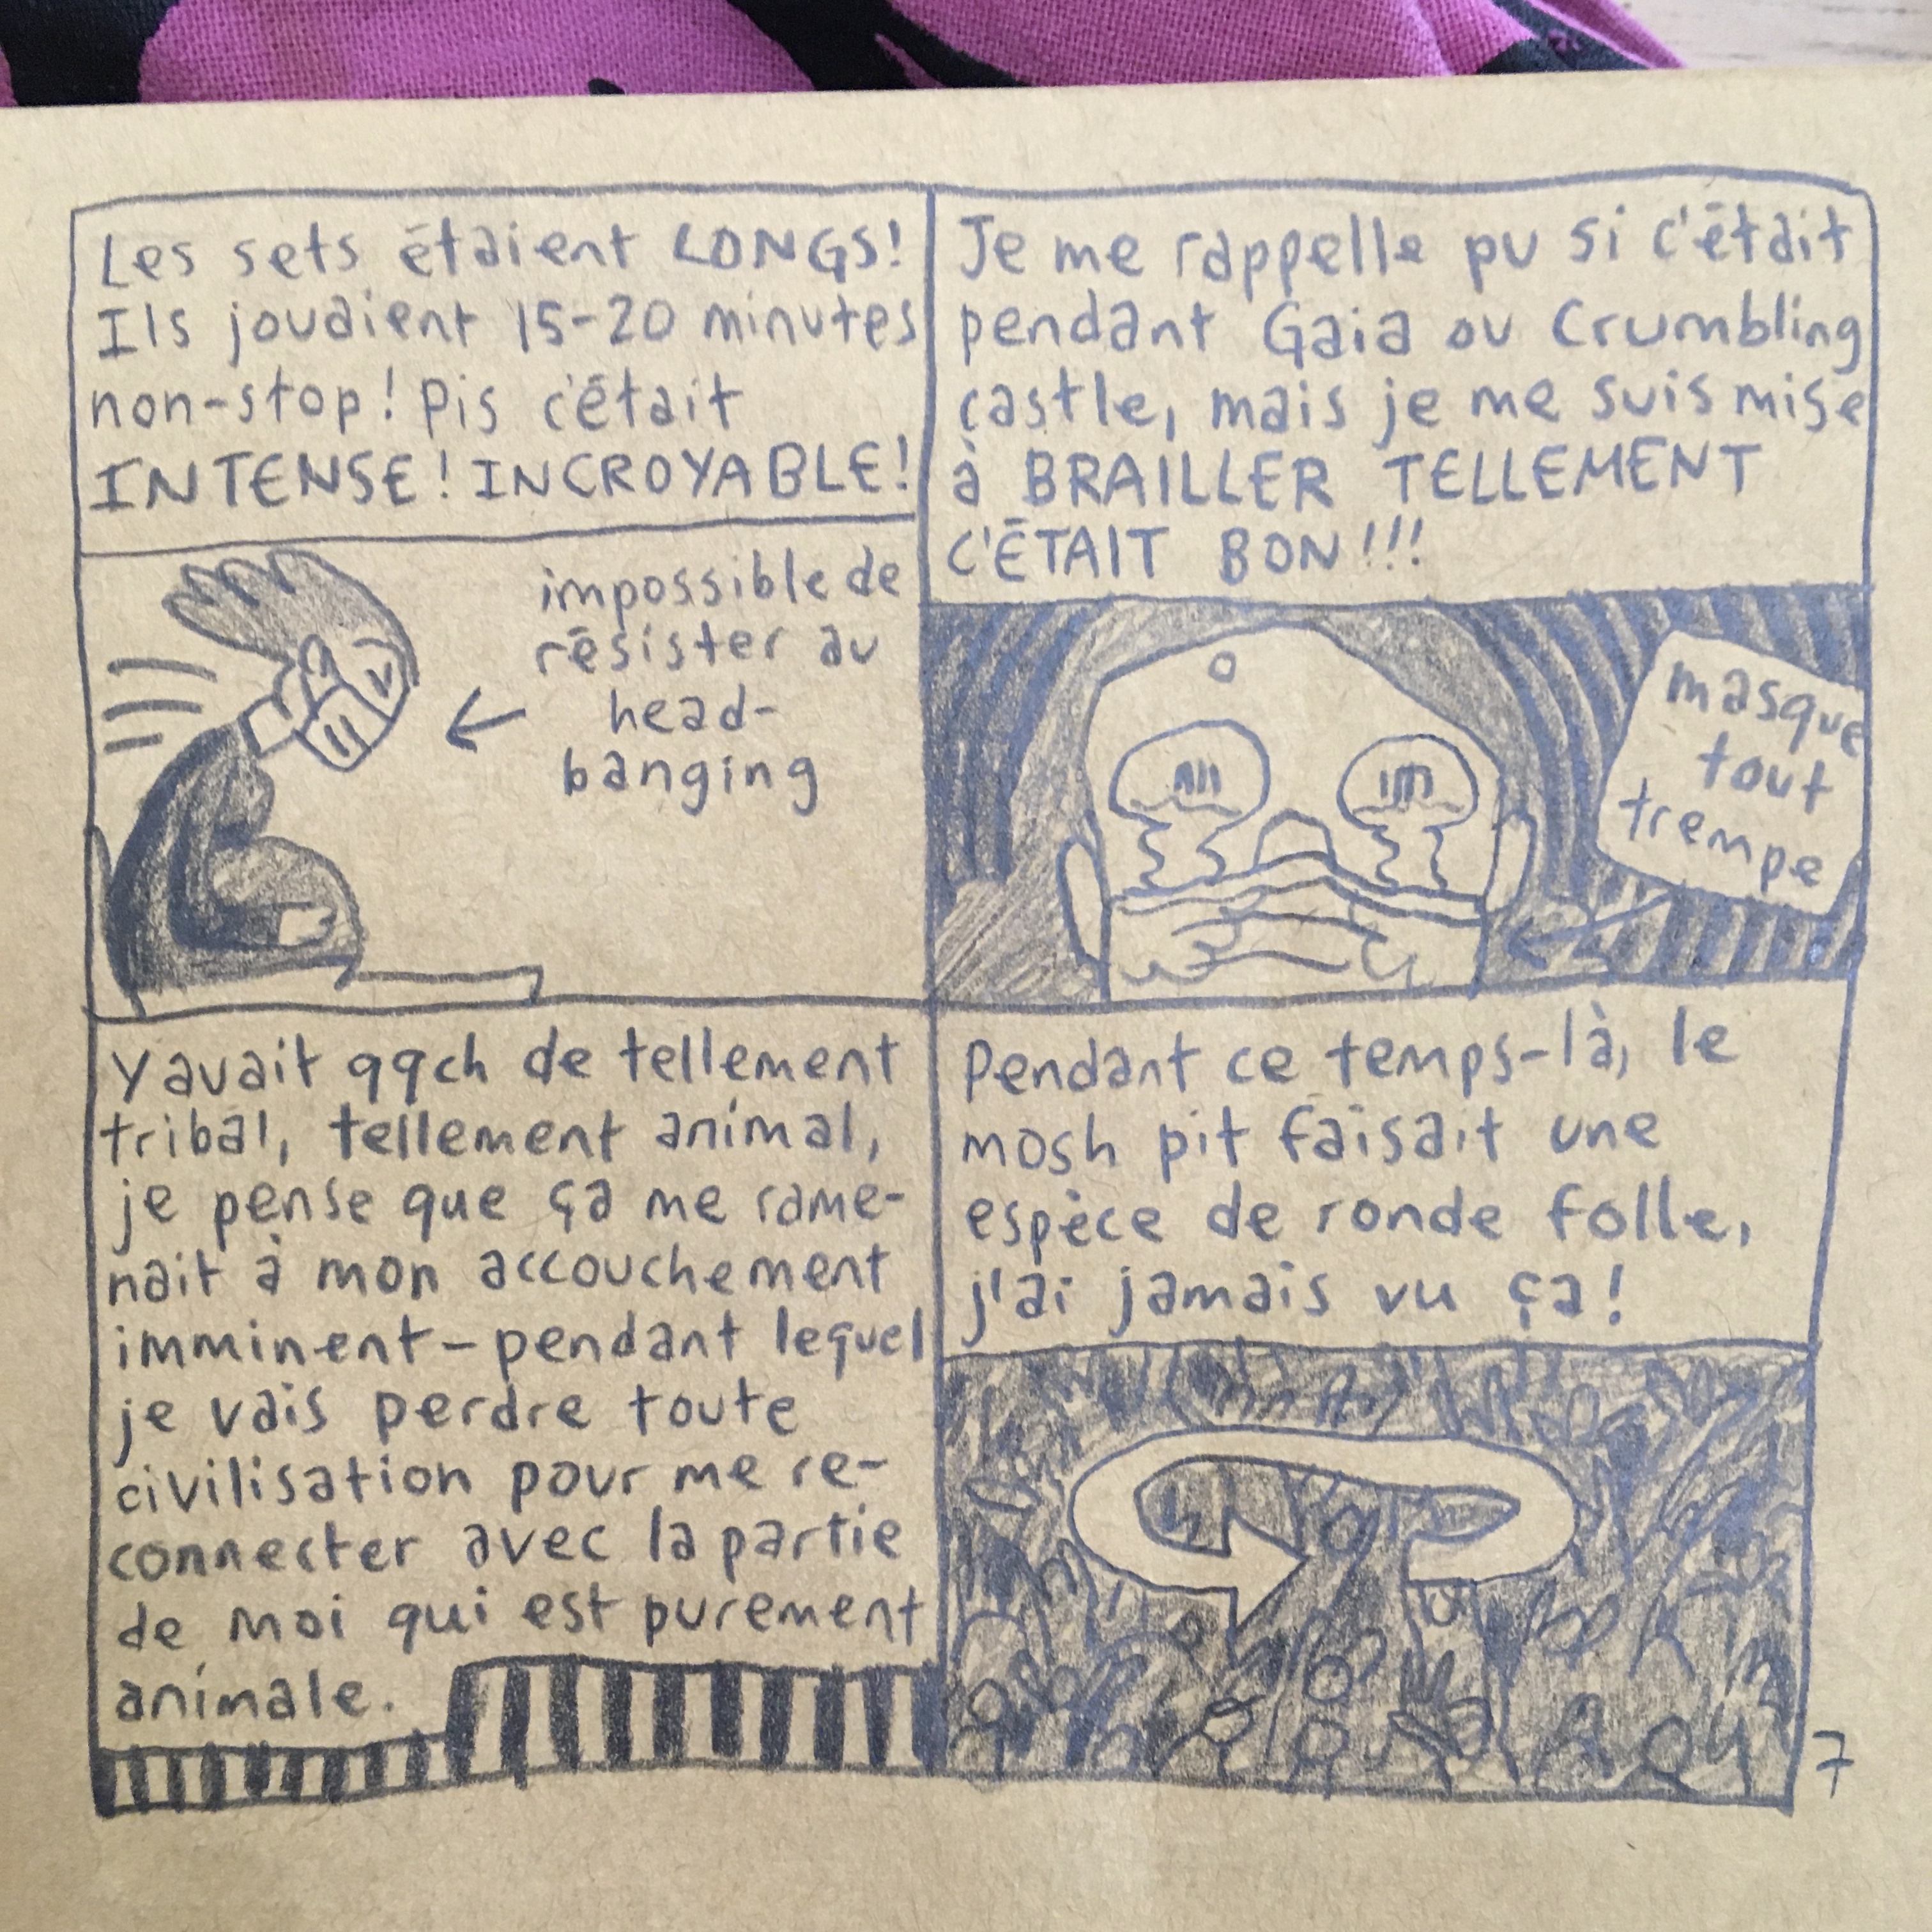 Les sets étaient LONGS!
Ils jouaient 15-20 minutes
non-stop! Pis c'était
INTENSE! INCROYABLE!
impossible de
résister au
head-
banging
Je me rappelle pu si c'était
pendant Gaia ou Crumbling
castle, mais je me suis mise
à BRAILLER TELLEMENT
C'ÉTAIT BON!!!
masque
tout
trempe
Y avait qqch de tellement
tribal, tellement animal,
je pense que ça me rame-
nait à mon accouchement
imminent - pendant lequel
je vais perdre toute
civilisation pour me re-
connecter avec la partie
de moi qui est purement
animale.
Pendant ce temps-là, le
mosh pit faisait une
espèce de ronde folle,
j'ai jamais vu ça!
7